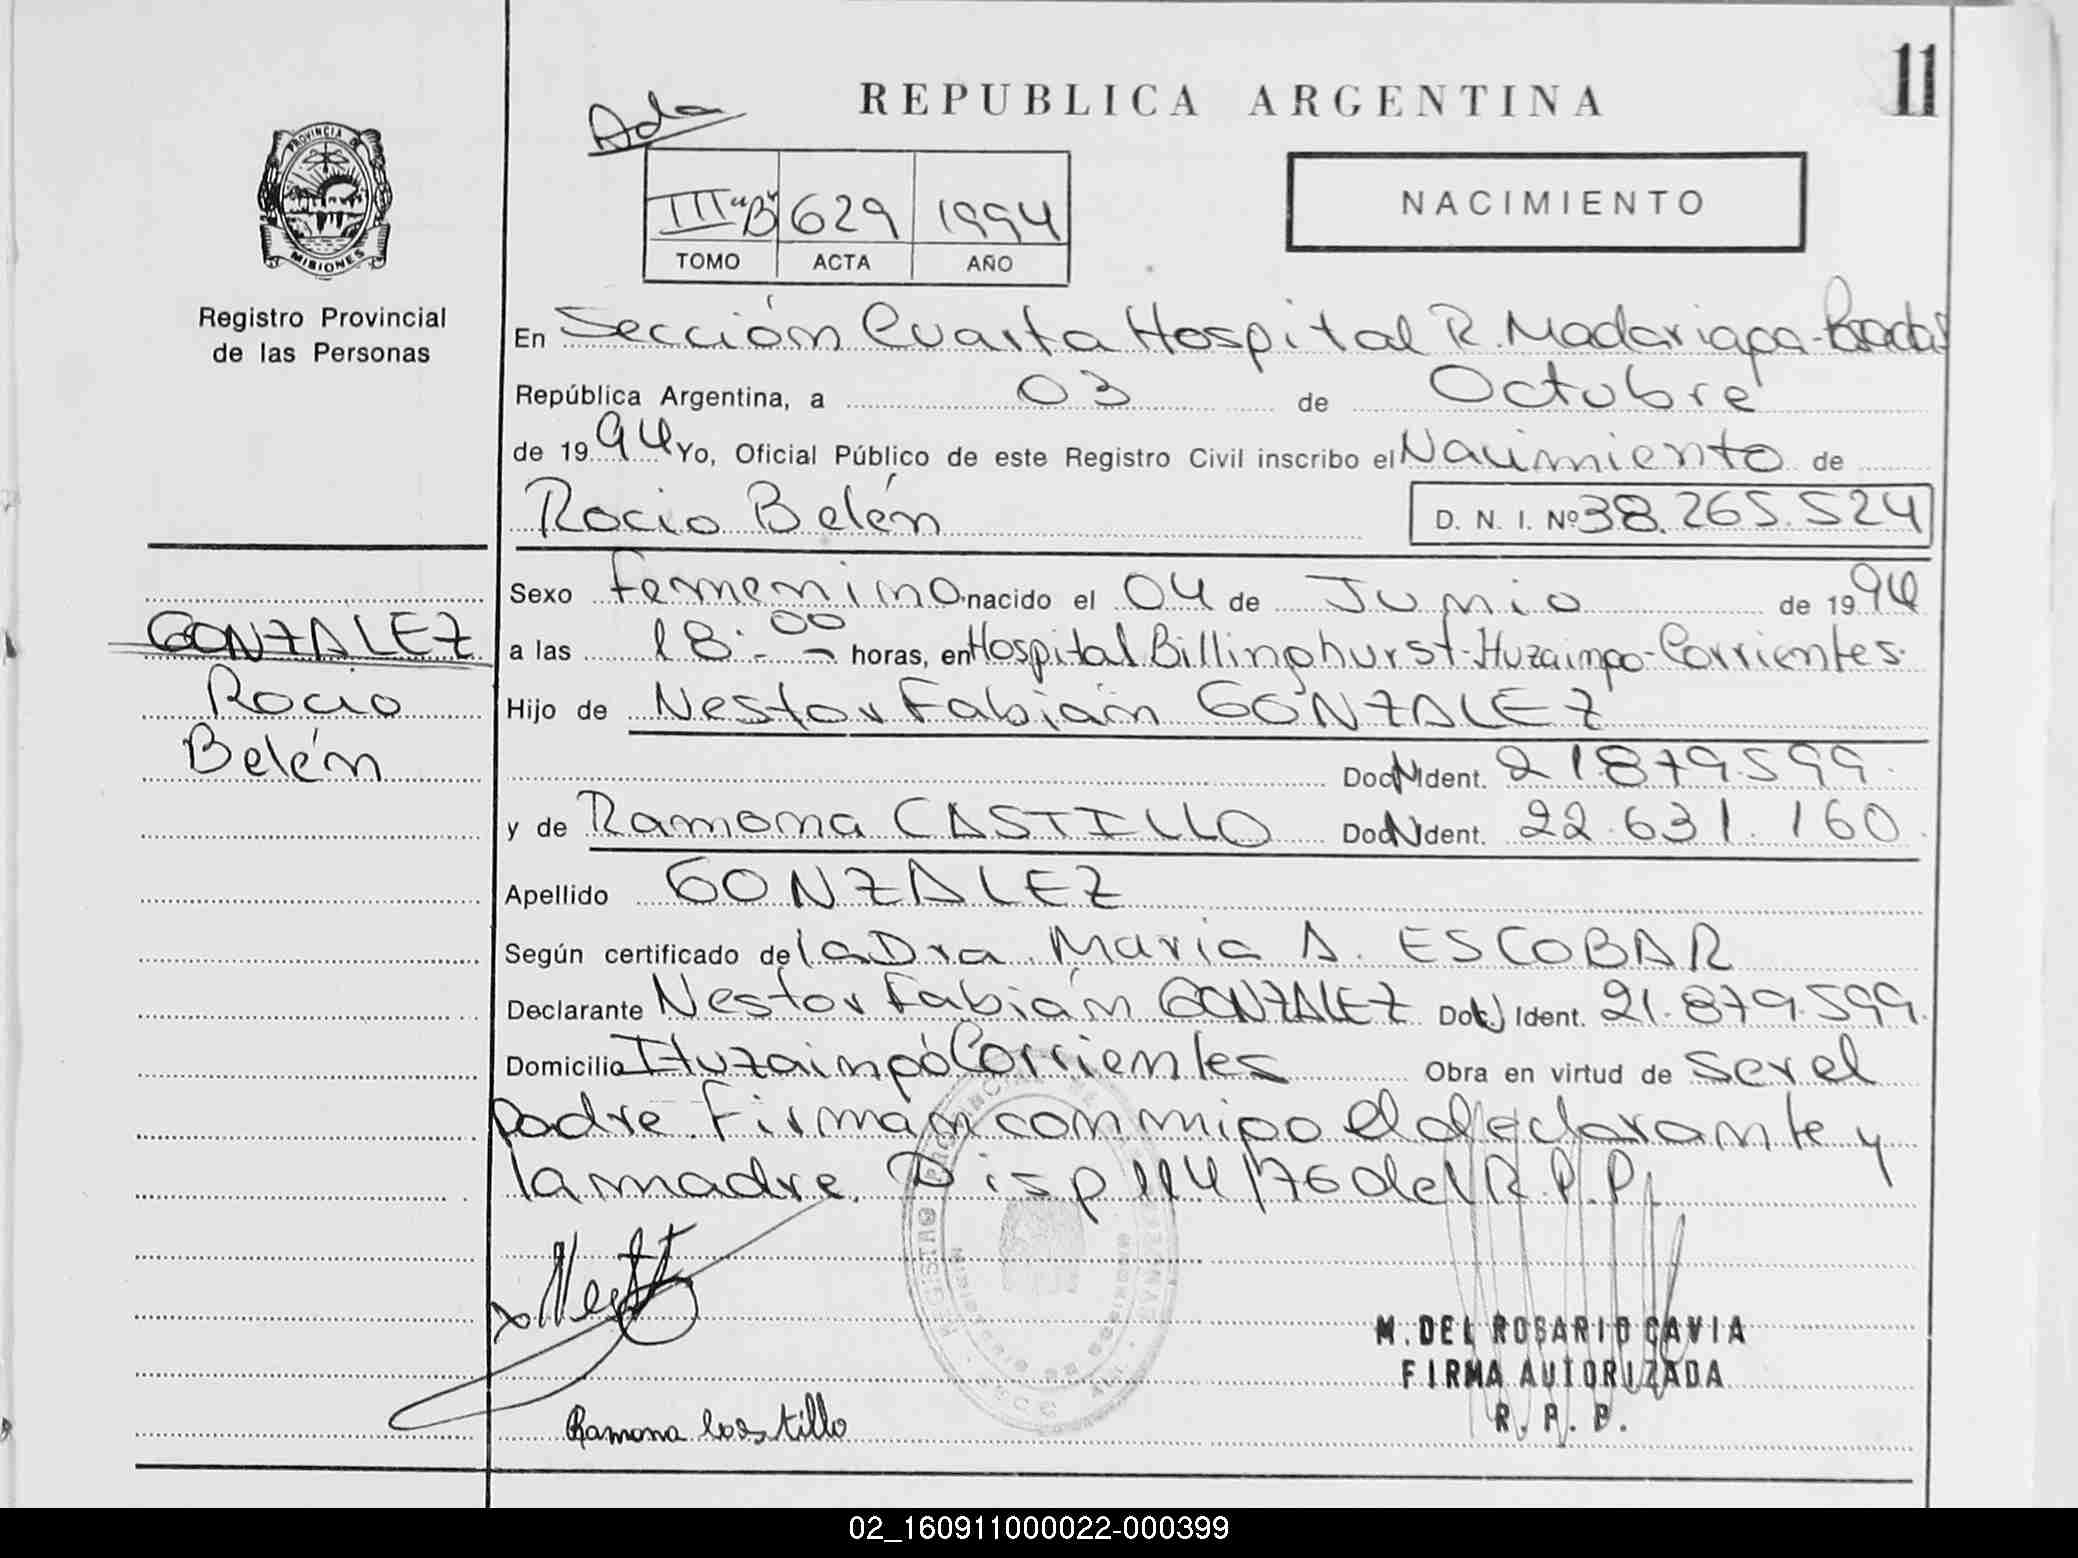 11
REPUBLICA ARGENTINA
Ada
III "B" 629 1994
TOMO ACTA AÑO
NACIMIENTO
PROVINCIA DE
MISIONES
Registro Provincial
de las Personas
En Sección Cuarta Hospital R. Madariaga - Posadas
República Argentina, a 03 de Octubre
de 1994 Yo, Oficial Público de este Registro Civil inscribo el Nacimiento de
Rocio Belén D. N. I. Nº 38.265.524
GONZALEZ
Rocio
Belén
Sexo femenino nacido el 04 de Junio de 1994
a las 18:00 - horas, en Hospital Billinghurst - Ituzaingo - Corrientes.
Hijo de Nestor Fabián GONZALEZ
Doc N Ident. 21.879.599.
y de Ramona CASTILLO Doc N Ident. 22.631.160.
Apellido GONZALEZ
Según certificado de la Dra. Maria A. ESCOBAR
Declarante Nestor Fabián GONZALEZ Doc N Ident. 21.879.599.
Domicilio Ituzaingó Corrientes Obra en virtud de ser el
padre. Firman conmigo el declarante y
la madre. Disp 114/76 del R.P.P.
Ramona Castillo
M. DEL ROSARIO CAVIA
FIRMA AUTORIZADA
R. P. P.
02_160911000022-000399